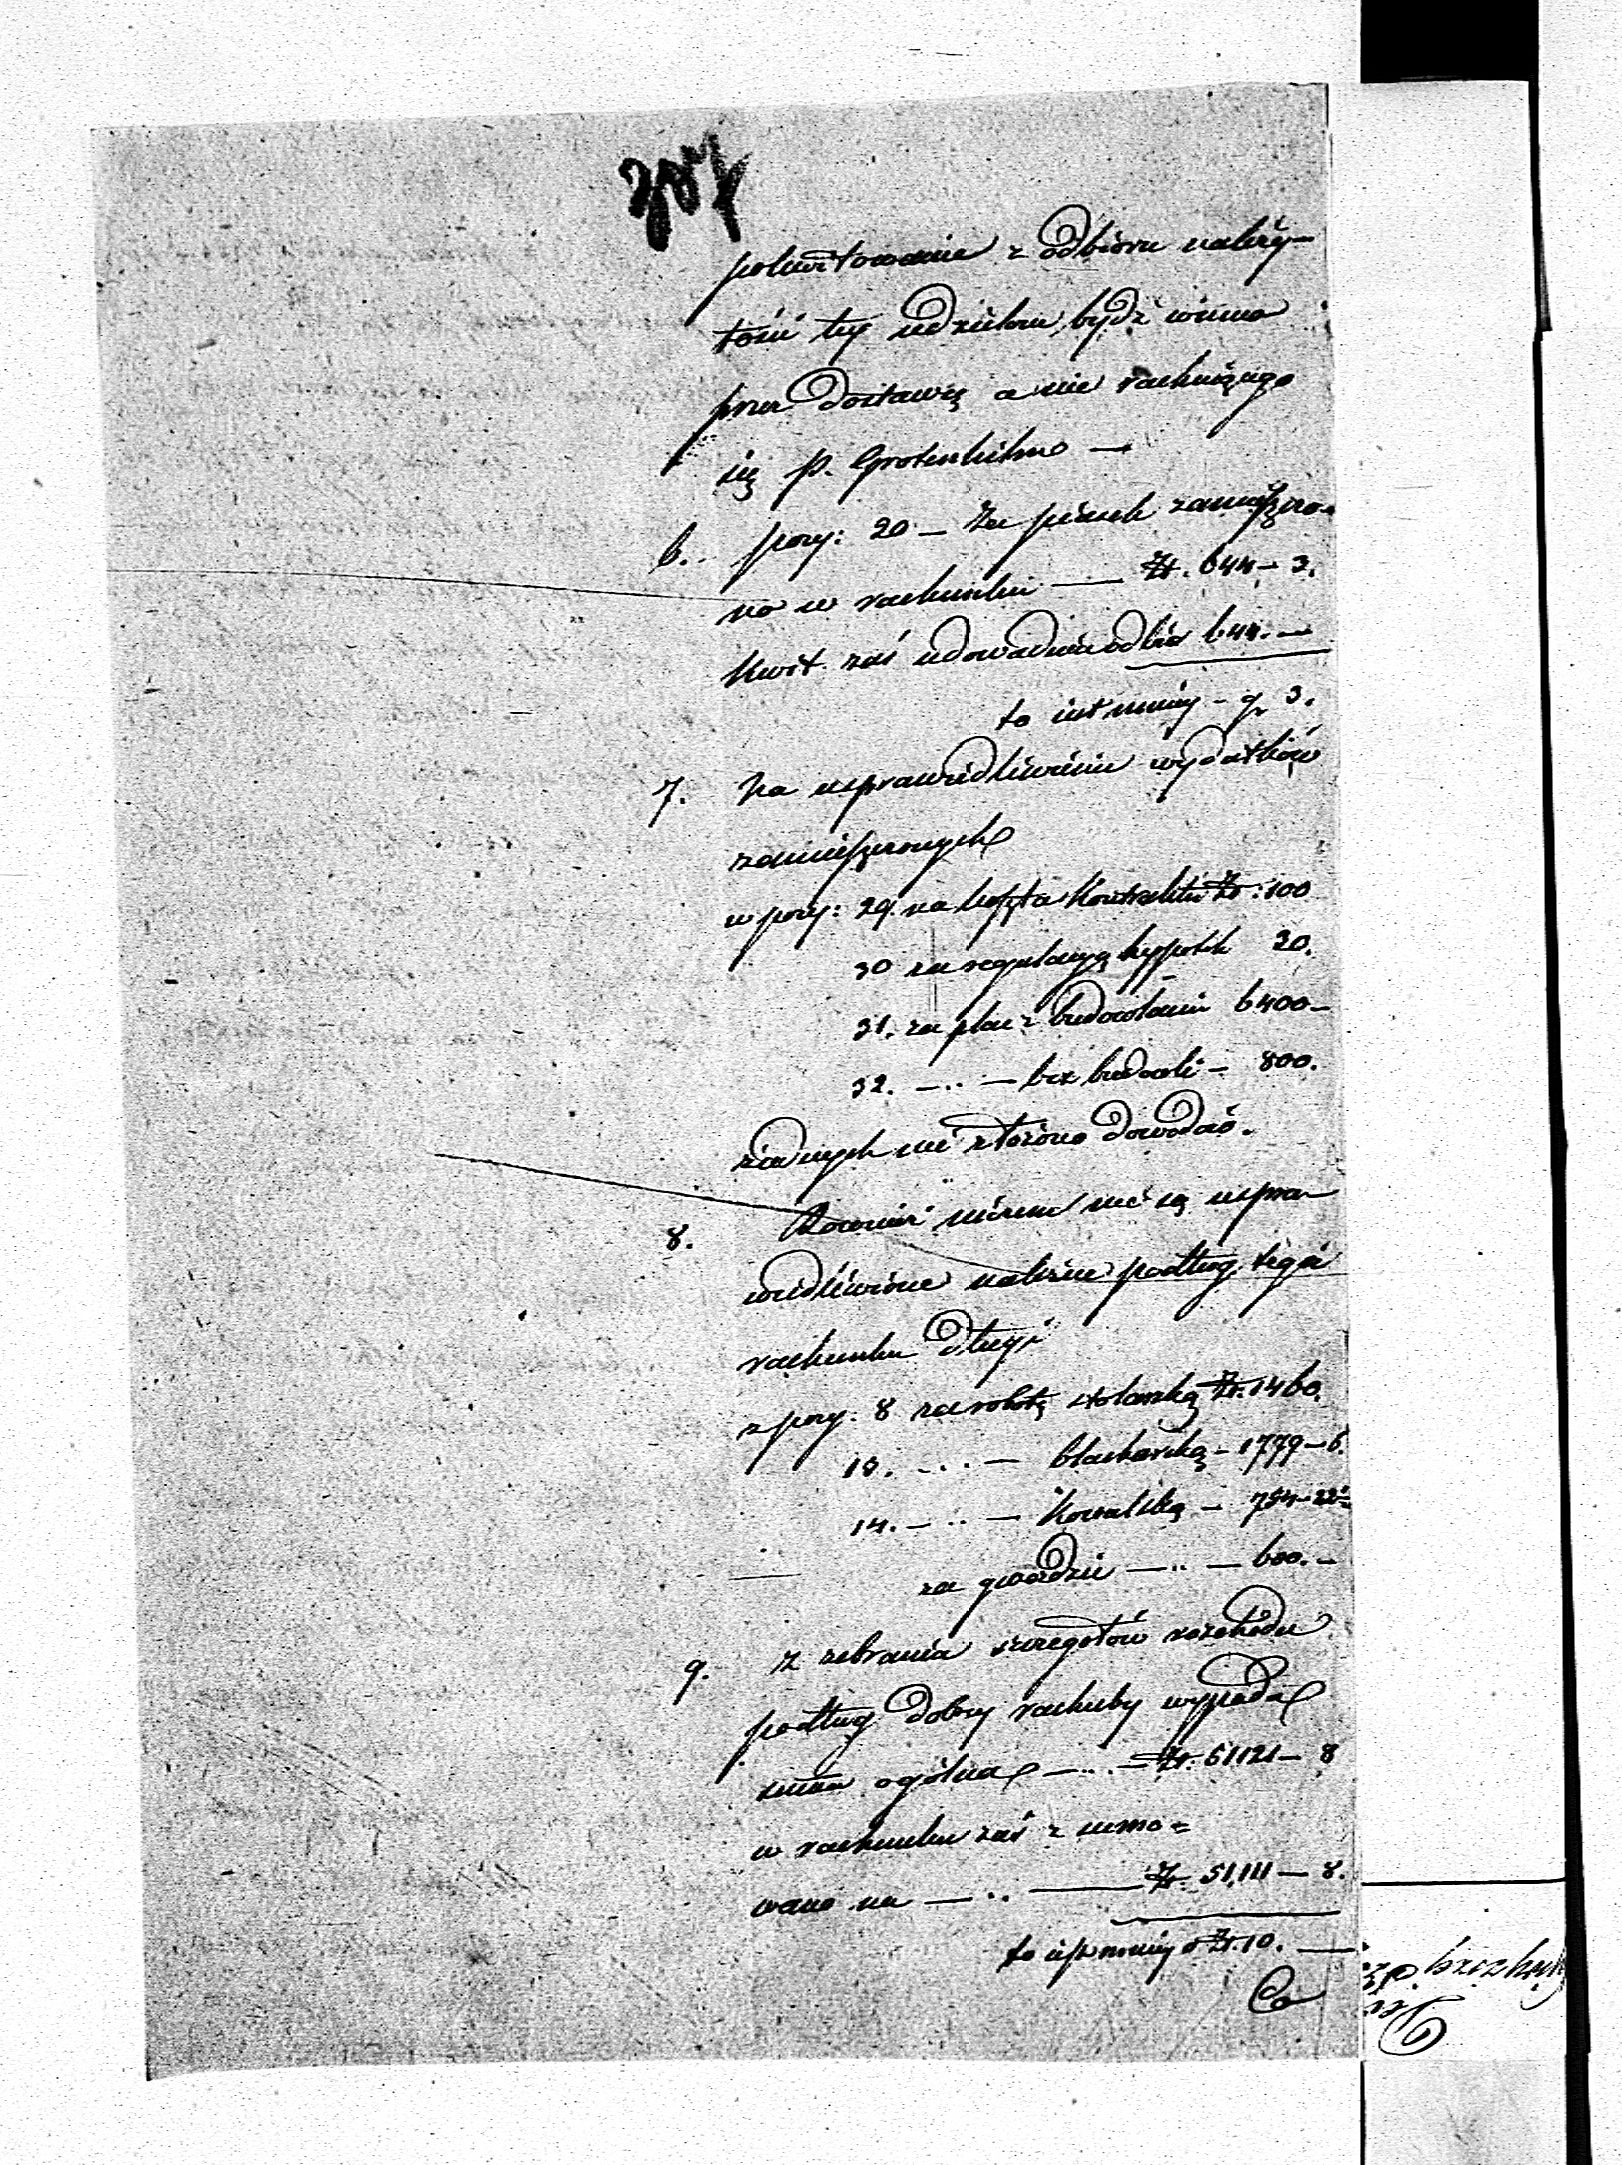 pokwitowanie z odbioru należy-
tości tey udzielone bydź winno
przez dostawcę a nie rachuiącego
się P. Grotenhelma —
6. pozy: 20 — Za piasek zamieszczo-
no w rachunku — Zł. 644 - 3.
Kwit zaś udowadnia odbiór 644. —
to iest mniey - gr 3.
7. Na usprawiedliwienie wydatków
zamieszczonych
w pozy: 29. na koszta Kontraktu Zł: 100
30 za regulacyą hypotek 20.
31. za plac z budowlami 6400 —
32. — .. — bez budowli — 800.
żadnych nie złożono dowodów.
8. Również niczem nie są uspra-
wiedliwione należne podług tegoż
rachunku długi
z pozy: 8 za robotę stolarską Zł. 1460.
10. — .. — blacharską — 1779 — 6.
14. — .. — Kowalską — 754 — 22
za gwoździe — .. — 600. —
9. Z zebrania szczegółów rozchodu
podług dobrey rachuby wypada
suma ogólna — .. — Zł. 51121 — 8
w rachunku zaś z sumo=
wano na — .. — Zł. 51,111 — 8.
to iest mniey o Zł. 10. —
Co